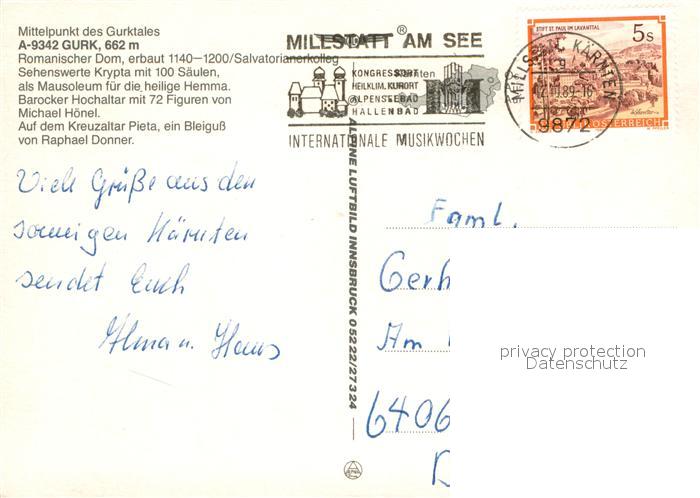 Mittelpunkt des Gurktales
A-9342 GURK, 662 m
Romanischer Dom, erbaut 1140–1200/Salvatorianerkolleg
Sehenswerte Krypta mit 100 Säulen,
als Mausoleum für die heilige Hemma.
Barocker Hochaltar mit 72 Figuren von
Michael Hönel.
Auf dem Kreuzaltar Pieta, ein Bleiguß
von Raphael Donner.
MILLSTATT ® AM SEE
KONGRESSORT
HEILKLIM. KURORT
ALPENSEEBAD
HALLENBAD
INTERNATIONALE MUSIKWOCHEN
STIFT ST. PAUL IM LAVANTTAL
5 S
KÄRNTEN
9872
REPUBLIK ÖSTERREICH
ALPINE LUFTBILD INNSBRUCK 05222/27324
Viele Grüße aus dem
sonnigen Kärnten
sendet Euch
Alma u. Hans
Faml.
Gerh
Am
6406
privacy protection
Datenschutz